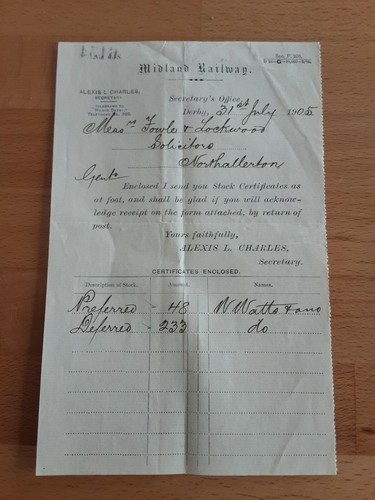 Midland Railway.
ALEXIS L. CHARLES,
SECRETARY.
Secretary's Office,
Derby, 31st July 1905
Messrs Fowle & Lockwood
Solicitors
Northallerton
Gents
Enclosed I send you Stock Certificates as
at foot, and shall be glad if you will acknow-
ledge receipt on the form attached, by return of
post.
Yours faithfully,
ALEXIS L. CHARLES,
Secretary.
CERTIFICATES ENCLOSED.
Description of Stock. Amount. Names.
Preferred - 48 W Watts & ano
Deferred - 233 do